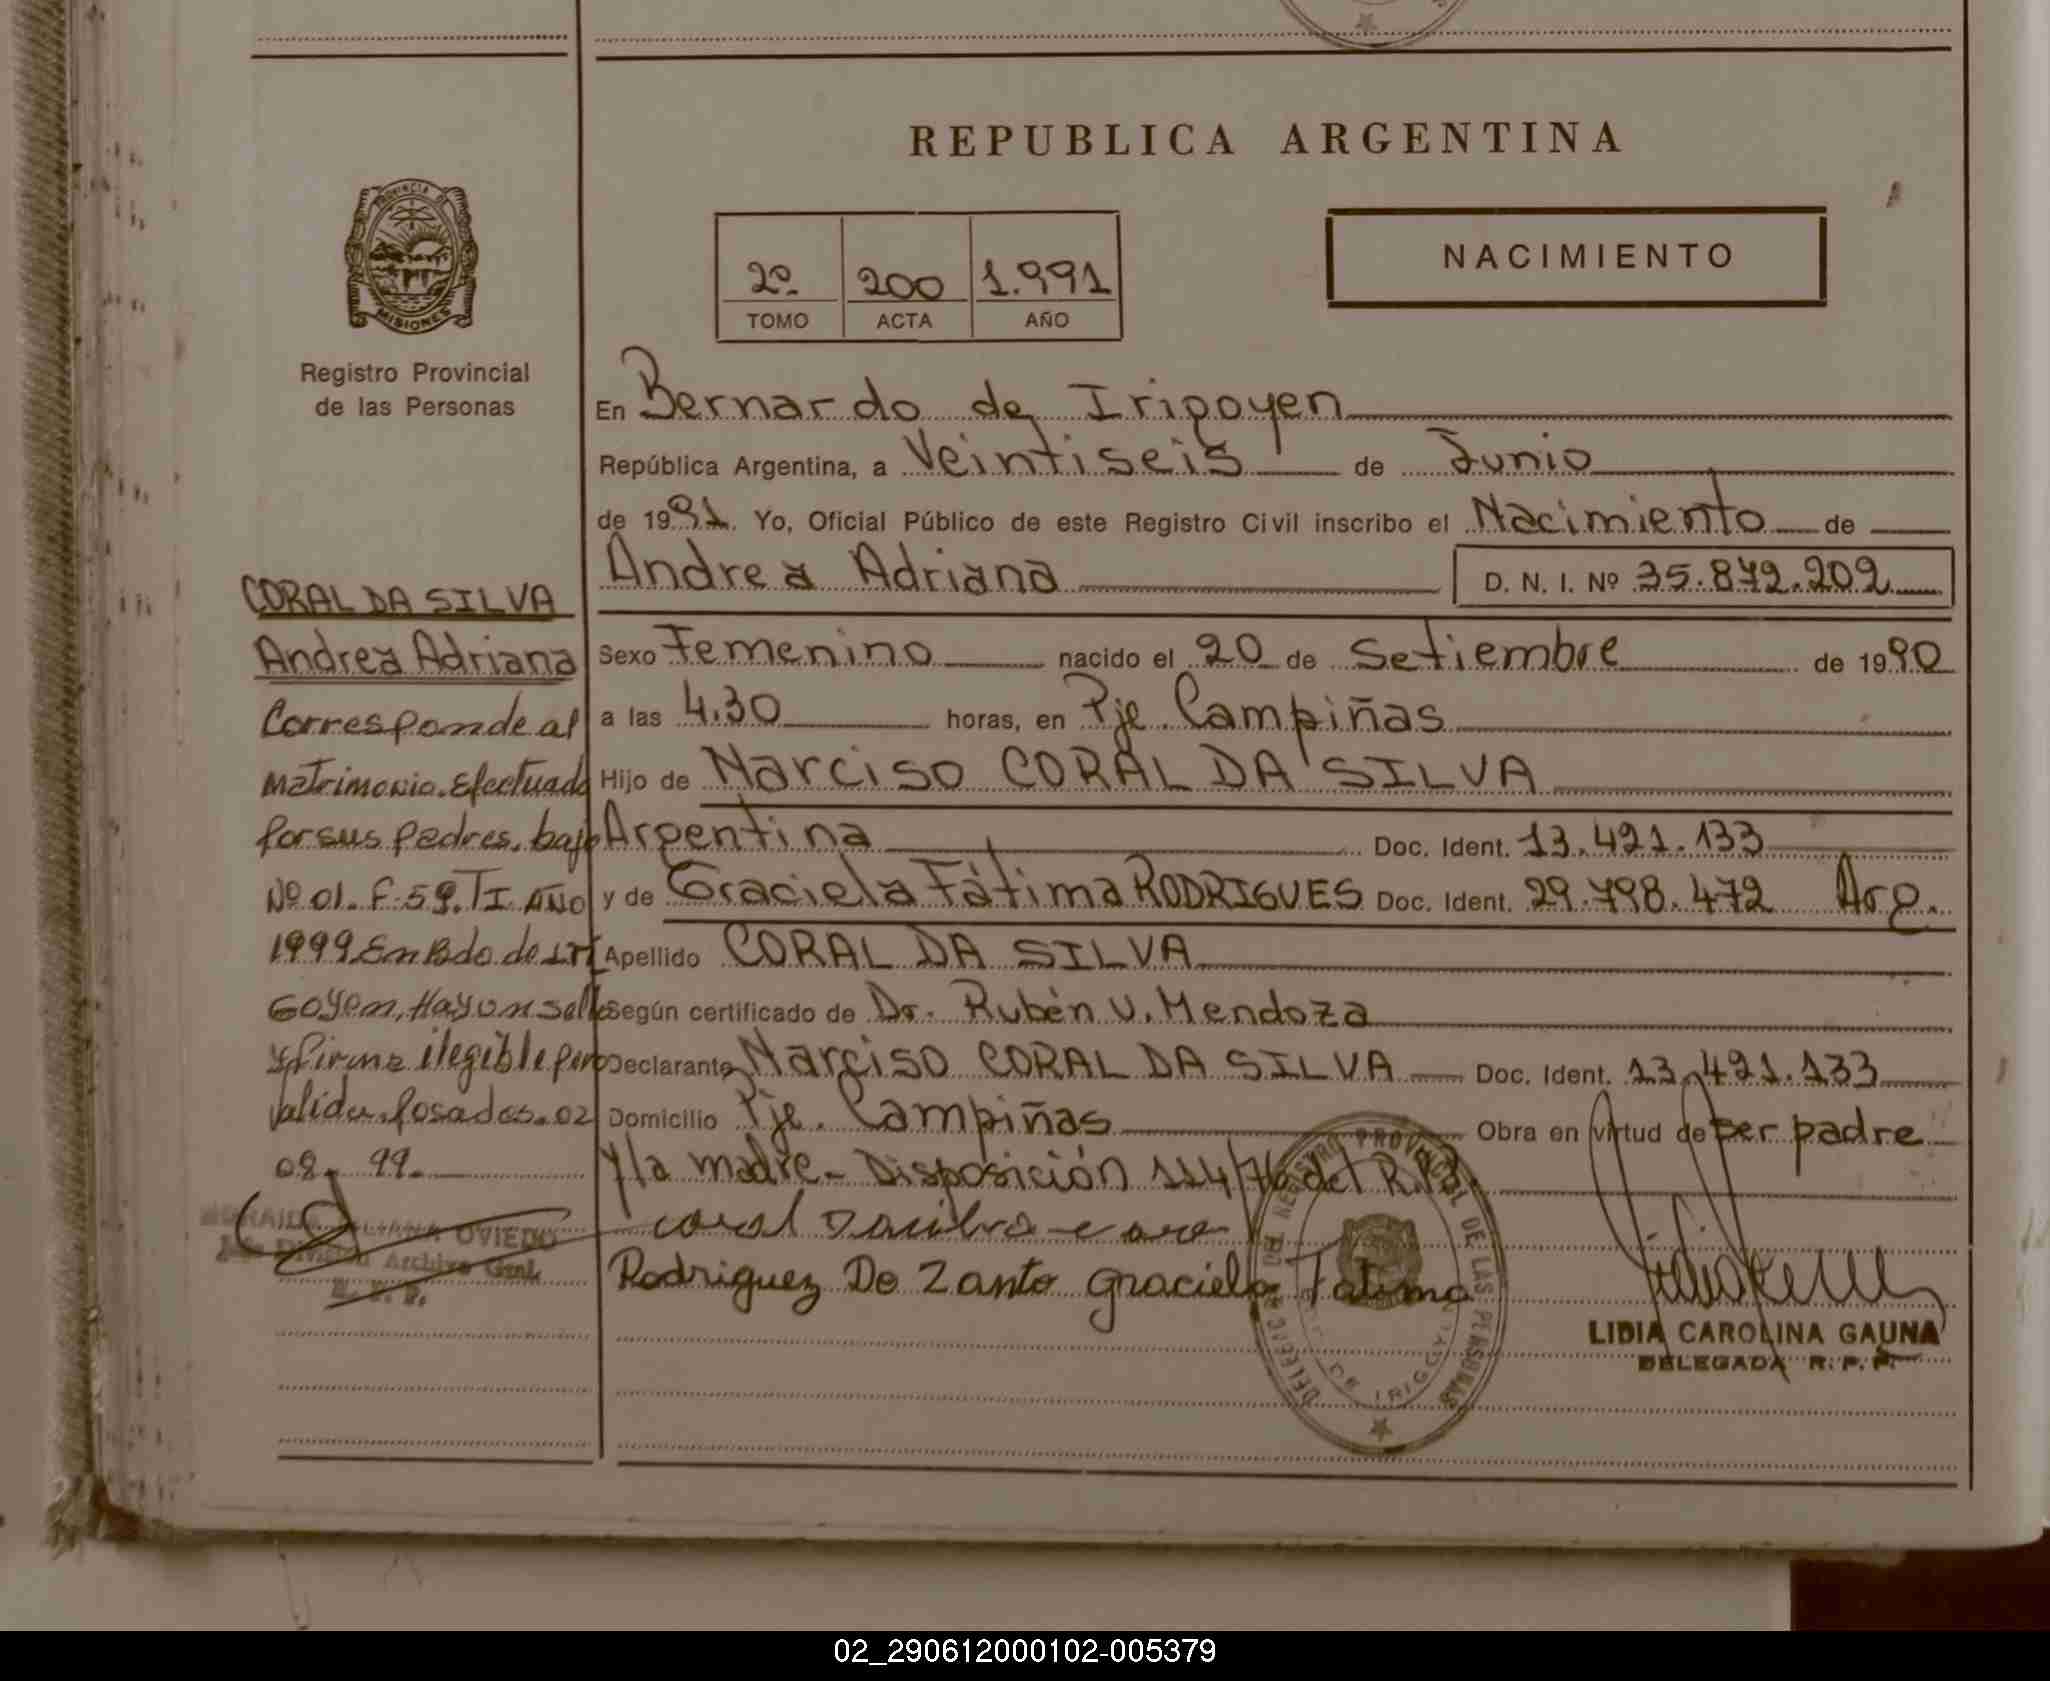 REPUBLICA ARGENTINA
PROVINCIA DE
MISIONES
Registro Provincial
de las Personas
2º 200 1.991
TOMO ACTA AÑO
NACIMIENTO
En Bernardo de Irigoyen
República Argentina, a Veintiseis de Junio
de 1991. Yo, Oficial Público de este Registro Civil inscribo el Nacimiento de
Andrea Adriana D. N. I. Nº 35.872.202
Sexo Femenino nacido el 20 de Setiembre de 1990
a las 4.30 horas, en Pje. Campiñas
Hijo de Narciso CORAL DA SILVA
Argentina Doc. Ident. 13.421.133
y de Graciela Fátima RODRIGUES Doc. Ident. 29.798.472 Arg.
Apellido CORAL DA SILVA
Según certificado de Dr. Rubén V. Mendoza
Declarante Narciso CORAL DA SILVA Doc. Ident. 13.421.133
Domicilio Pje. Campiñas Obra en virtud de ser padre
y la madre.- Disposición 114/76 del R.P.P.
coral
Rodriguez De Zanto Graciela Fatima
CORAL DA SILVA
Andrea Adriana
Corresponde al
matrimonio. Efectuado
por sus padres, bajo
Nº 01. F. 59. T I. AÑO
1999. En Bdo. de Iri
Goyen, Hay un sello
y firma ilegible pero
valida. Posadas. 02
08. 99.
LILIANA OVIEDO
Jefe División Archivo Gral.
R. P. P.
DELEGACION DEL REGISTRO PROVINCIAL DE LAS PERSONAS
DE IRIGOYEN
LIDIA CAROLINA GAUNA
DELEGADA R. P. P.
02_290612000102-005379